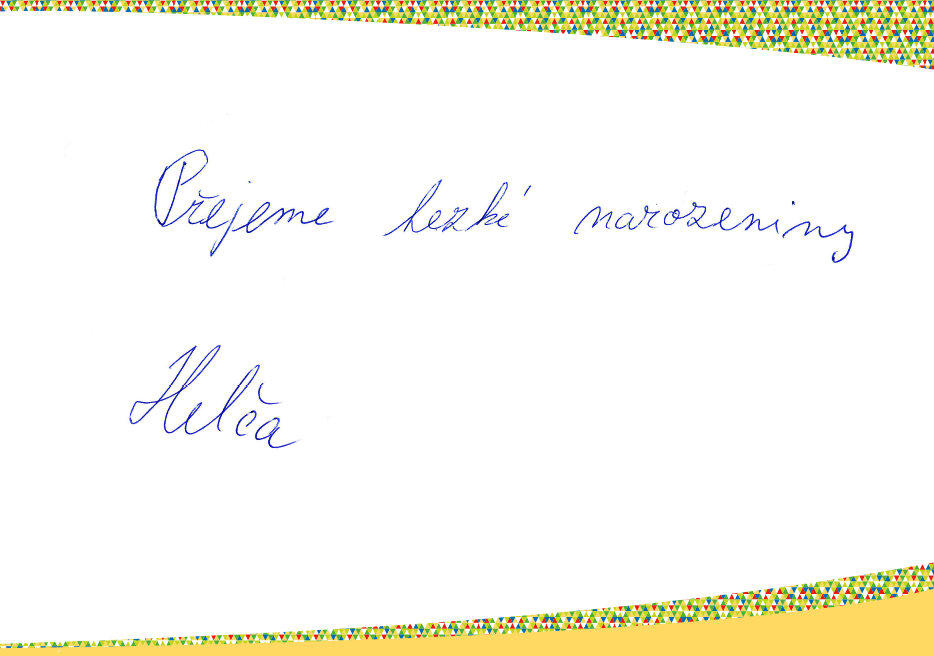 Přejeme hezké narozeniny
Helča